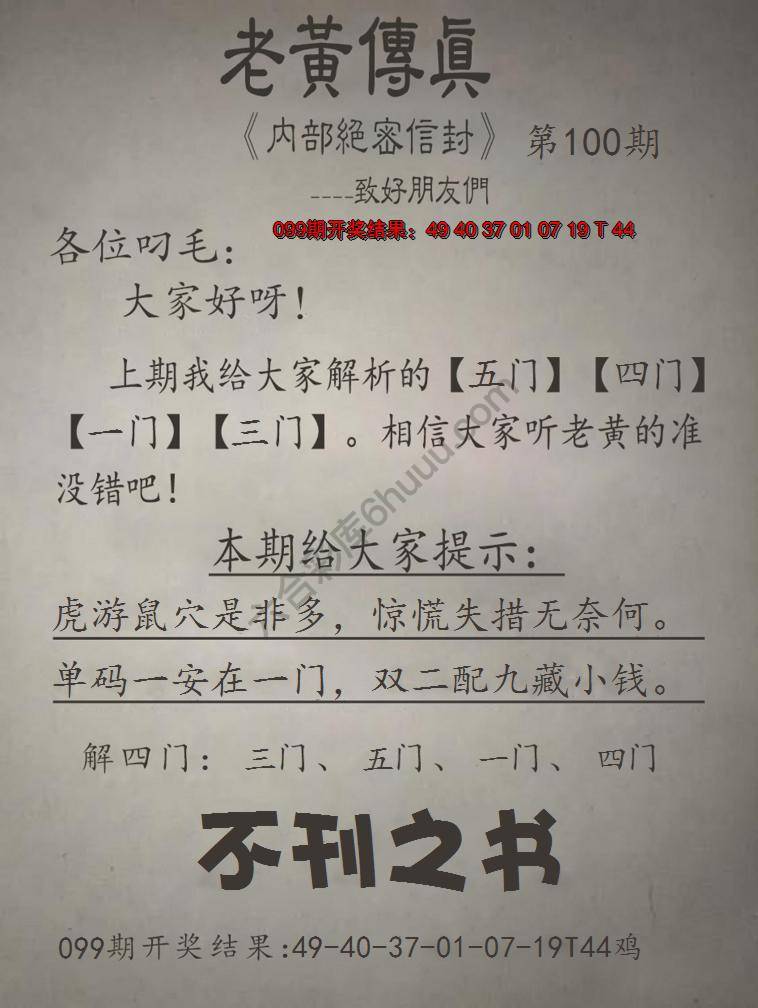 老黃傳眞
《内部絕密信封》 第100期
----致好朋友們
099期开奖结果：49 40 37 01 07 19 T 44
各位叼毛：
大家好呀！
上期我给大家解析的【五门】【四门】
【一门】【三门】。相信大家听老黄的准
没错吧！
本期给大家提示：
虎游鼠穴是非多，惊慌失措无奈何。
单码一安在一门，双二配九藏小钱。
解四门： 三门、 五门、 一门、 四门
不刊之书
099期开奖结果:49-40-37-01-07-19T44鸡
六合彩库6huuu.com